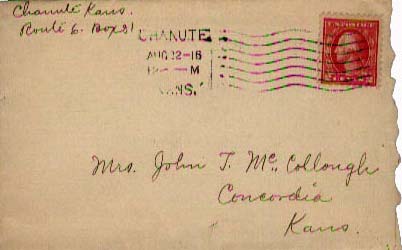 Chanute Kans.
Route 6. Box 81
CHANUTE
AUG 22-16
M
KANS.
Mrs. John T. Mc Collough
Concordia
Kans.